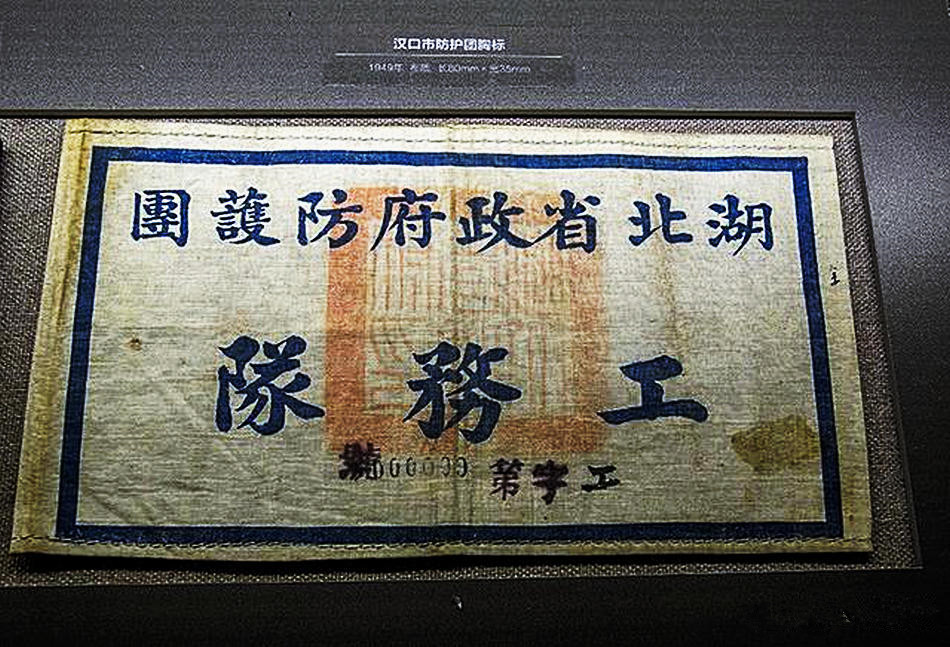 汉口市防护团胸标
1949年 布质 长80mm×宽35mm
湖北省政府防護團
工務隊
工字第000000號